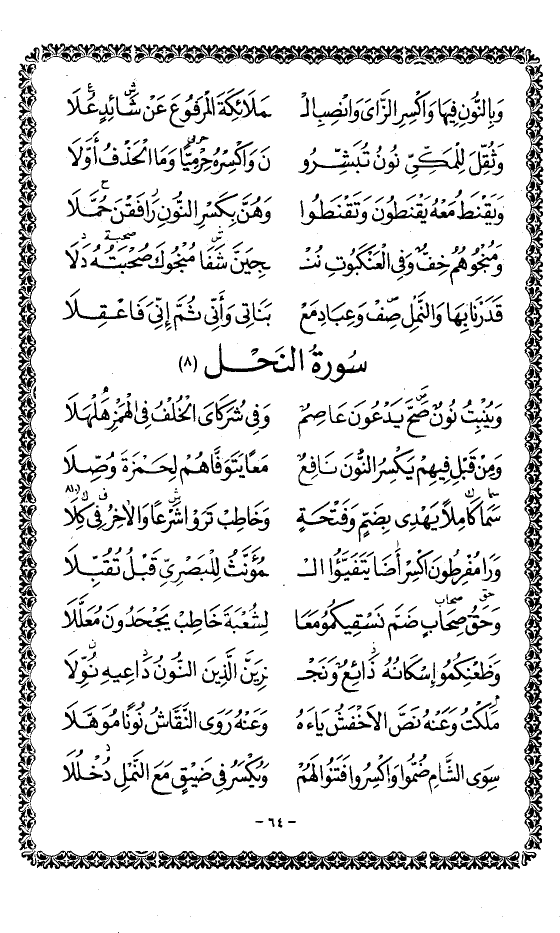 وَبِالنُّونِ فِيهَا وَاكْسِرِ الزَّايَ وَانْصِبِ الْـ مَلَائِكَةَ الْمَرْفُوعَ عَنْ شَائِدٍ عُلَا
وَثُقِّلَ لِلْمَكِّيِّ نُونُ تُبَشِّرُو نَ وَاكْسِرْهُ حِرْمِيًّا وَمَا الْحَذْفُ أَوَّلَا
وَيَقْنَطُ مَعْهُ يَقْنَطُونَ وَتَقْنَطُوا وَهُنَّ بِكَسْرِ النُّونِ رَافَقْنَ حُمَّلَا
وَمُنْجُوهُمُ خِفٌّ وَفِي الْعَنْكَبُوتِ نُنْـ جِيَنَّ شَفَا مُنْجُوكَ صُحْبَتُهُ دَلَا
قَدَرْنَا بِهَا وَالنَّمْلِ صِفْ وَعِبَادِ مَعْ بَنَاتِي وَأَنِّي ثُمَّ إِنِّي فَاعْقِلَا
سُورَةُ النَحْلِ (٨)
وَيُنْبِتُ نُونٌ صَحَّ يَدْعُونَ عَاصِمٌ وَفِي شُرَكَايَ الْخُلْفُ فِي الْهَمْزِ هَلْهَلَا
وَمِنْ قَبْلِ فِيهِمْ يَكْسِرُ النُّونَ نَافِعٌ مَعًا يَتَوَفَّاهُمْ لِحَمْزَةَ وُصِّلَا
سَمَا كَامِلًا يَهْدِي بِضَمٍّ وَفَتْحَةٍ وَخَاطِبْ تَرَوْا شَرْعًا وَالْآخِرُ فِي كِلَا
وَرَا مُفْرِطُونَ اكْسِرْ أَضَا يَتَفَيَّؤُا الْـ مُؤَنَّثُ لِلْبَصْرِيِّ قَبْلُ تُقُبِّلَا
وَحَقُّ صِحَابٍ ضَمَّ نَسْقِيكُمُو مَعًا لِشُعْبَةَ خَاطِبْ يَجْحَدُونَ مُعَلَّلَا
وَظَعْنِكُمُو إِسْكَانُهُ ذَائِعٌ وَنَجْـ زِيَنَّ الَّذِينَ النُّونُ دَاعِيهِ نُوِّلَا
مَلَكْتُ وَعَنْهُ نَصَّ الْأَخْفَشُ يَاءَهُ وَعَنْهُ رَوَى النَّقَّاشُ نُونًا مُوَهَّلَا
سِوَى الشَّامِ ضُمُّوا وَاكْسِرُوا فَتَنُوا لَهُمْ وَيُكْسَرُ فِي ضَيْقٍ مَعَ النَّمْلِ دُخْلُلَا
- ٦٤ -